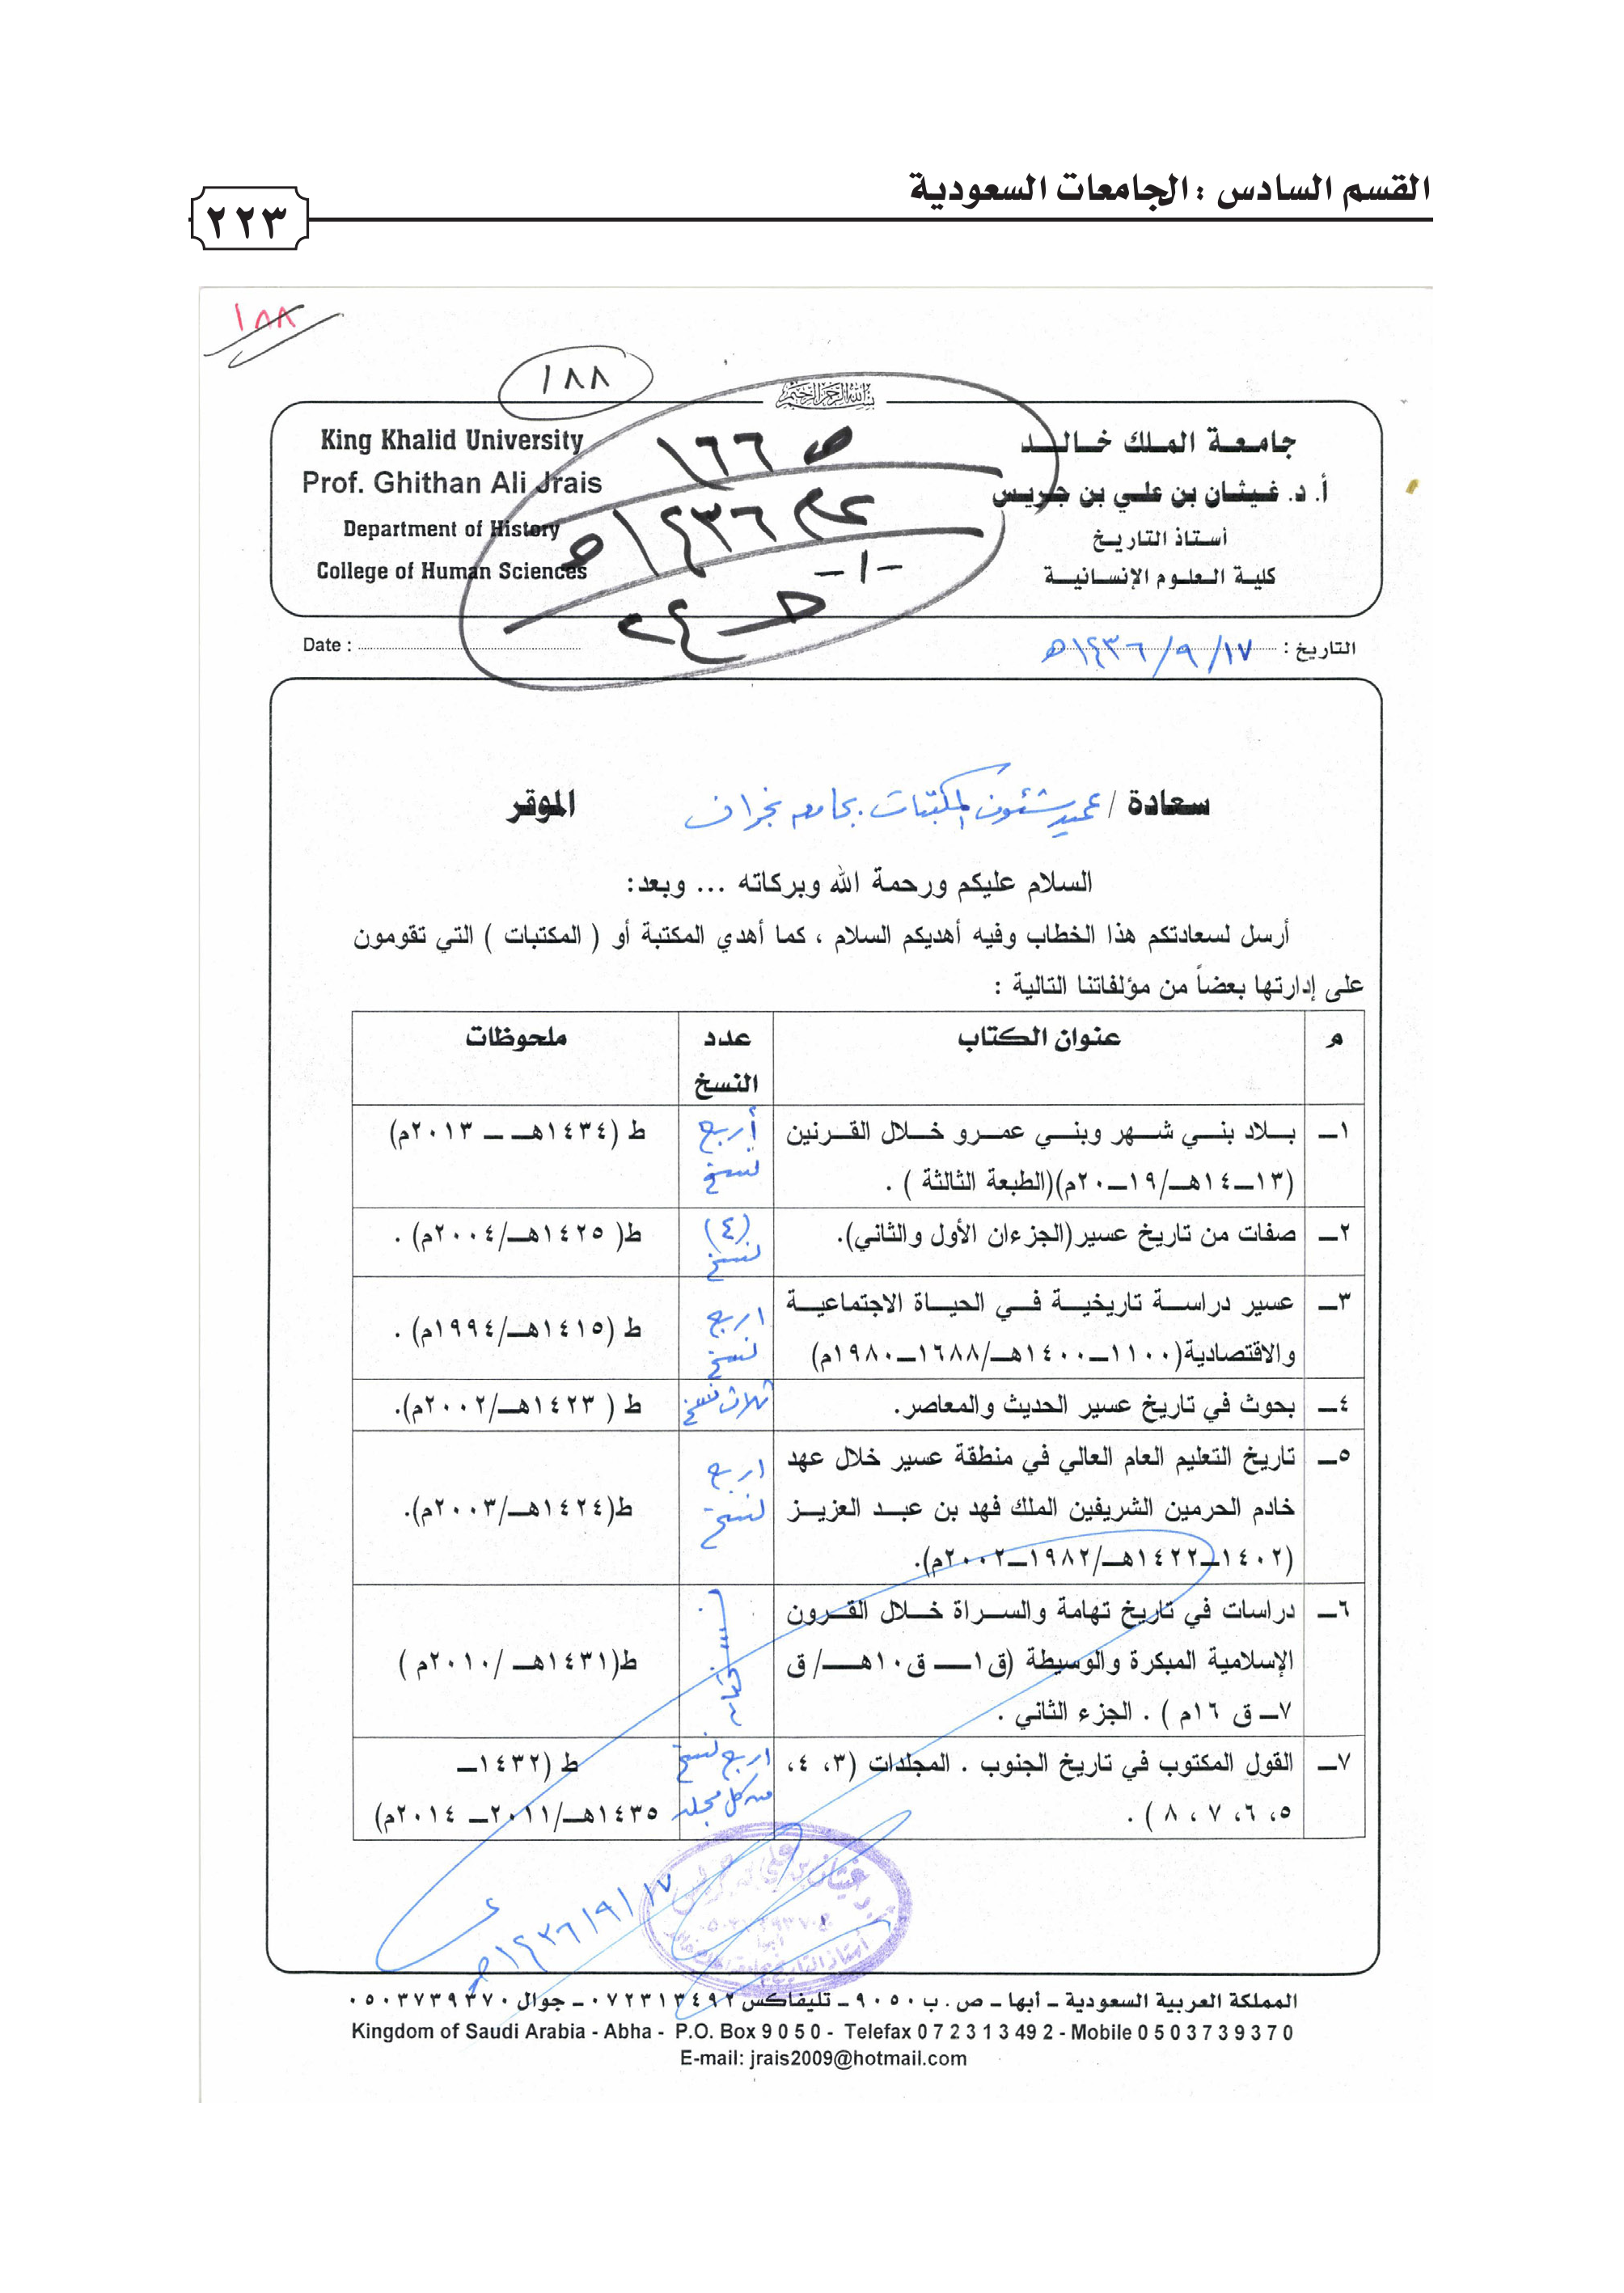 القسم السادس : الجامعات السعودية
٢٢٣
١٨٨
١٨٨
بسم الله الرحمن الرحيم
جامعة الملك خالد
أ. د. غيثان بن علي بن جريس
أستاذ التاريخ
كلية العلوم الإنسانية
King Khalid University
Prof. Ghithan Ali Jrais
Department of History
College of Human Sciences
ص ١٦٦
عام ١٤٣٦هـ
-١-
ح ٢٤
التاريخ : ١٧/ ٩/ ١٤٣٦هـ
Date :
سعادة / عميد شئون المكتبات بجامعه نجران الموقر
السلام عليكم ورحمة الله وبركاته ... وبعد:
أرسل لسعادتكم هذا الخطاب وفيه أهديكم السلام ، كما أهدي المكتبة أو ( المكتبات ) التي تقومون
على إدارتها بعضاً من مؤلفاتنا التالية :
م عنوان الكتاب عدد النسخ ملحوظات
١ـ بلاد بني شهر وبني عمرو خلال القرنين أربع نسخ ط (١٤٣٤هـ ــ ٢٠١٣م)
(١٣ــ١٤هـ/١٩ــ٢٠م)(الطبعة الثالثة ) .
٢ـ صفات من تاريخ عسير(الجزءان الأول والثاني). (٤) نسخ ط( ١٤٢٥هـ/٢٠٠٤م) .
٣ـ عسير دراسة تاريخية في الحياة الاجتماعية اربع نسخ ط (١٤١٥هـ/١٩٩٤م) .
والاقتصادية(١١٠٠ــ١٤٠٠هـ/١٦٨٨ــ١٩٨٠م)
٤ـ بحوث في تاريخ عسير الحديث والمعاصر. ثلاث نسخ ط ( ١٤٢٣هـ/٢٠٠٢م).
٥ـ تاريخ التعليم العام العالي في منطقة عسير خلال عهد اربع نسخ ط(١٤٢٤هـ/٢٠٠٣م).
خادم الحرمين الشريفين الملك فهد بن عبد العزيز
(١٤٠٢ــ١٤٢٢هـ/١٩٨٢ــ٢٠٠٢م).
٦ـ دراسات في تاريخ تهامة والسراة خلال القرون نسختان ط(١٤٣١هـ /٢٠١٠م )
الإسلامية المبكرة والوسيطة (ق١ــ ق١٠هـ/ ق
٧ــ ق ١٦م ) . الجزء الثاني .
٧ـ القول المكتوب في تاريخ الجنوب . المجلدات (٣، ٤، اربع نسخ ط (١٤٣٢ــ
٥، ٦، ٧ ، ٨ ) . من كل مجلد ١٤٣٥هـ/٢٠١١ــ ٢٠١٤م)
١٧/ ٩/ ١٤٣٦هـ
المملكة العربية السعودية ـ أبها ـ ص . ب ٩٠٥٠ ـ تليفاكس ٠٧٢٣١٣٤٩٢ ـ جوال ٠٥٠٣٧٣٩٣٧٠
Kingdom of Saudi Arabia - Abha - P.O. Box 9 0 5 0 - Telefax 0 7 2 3 1 3 49 2 - Mobile 0 5 0 3 7 3 9 3 7 0
E-mail: jrais2009@hotmail.com